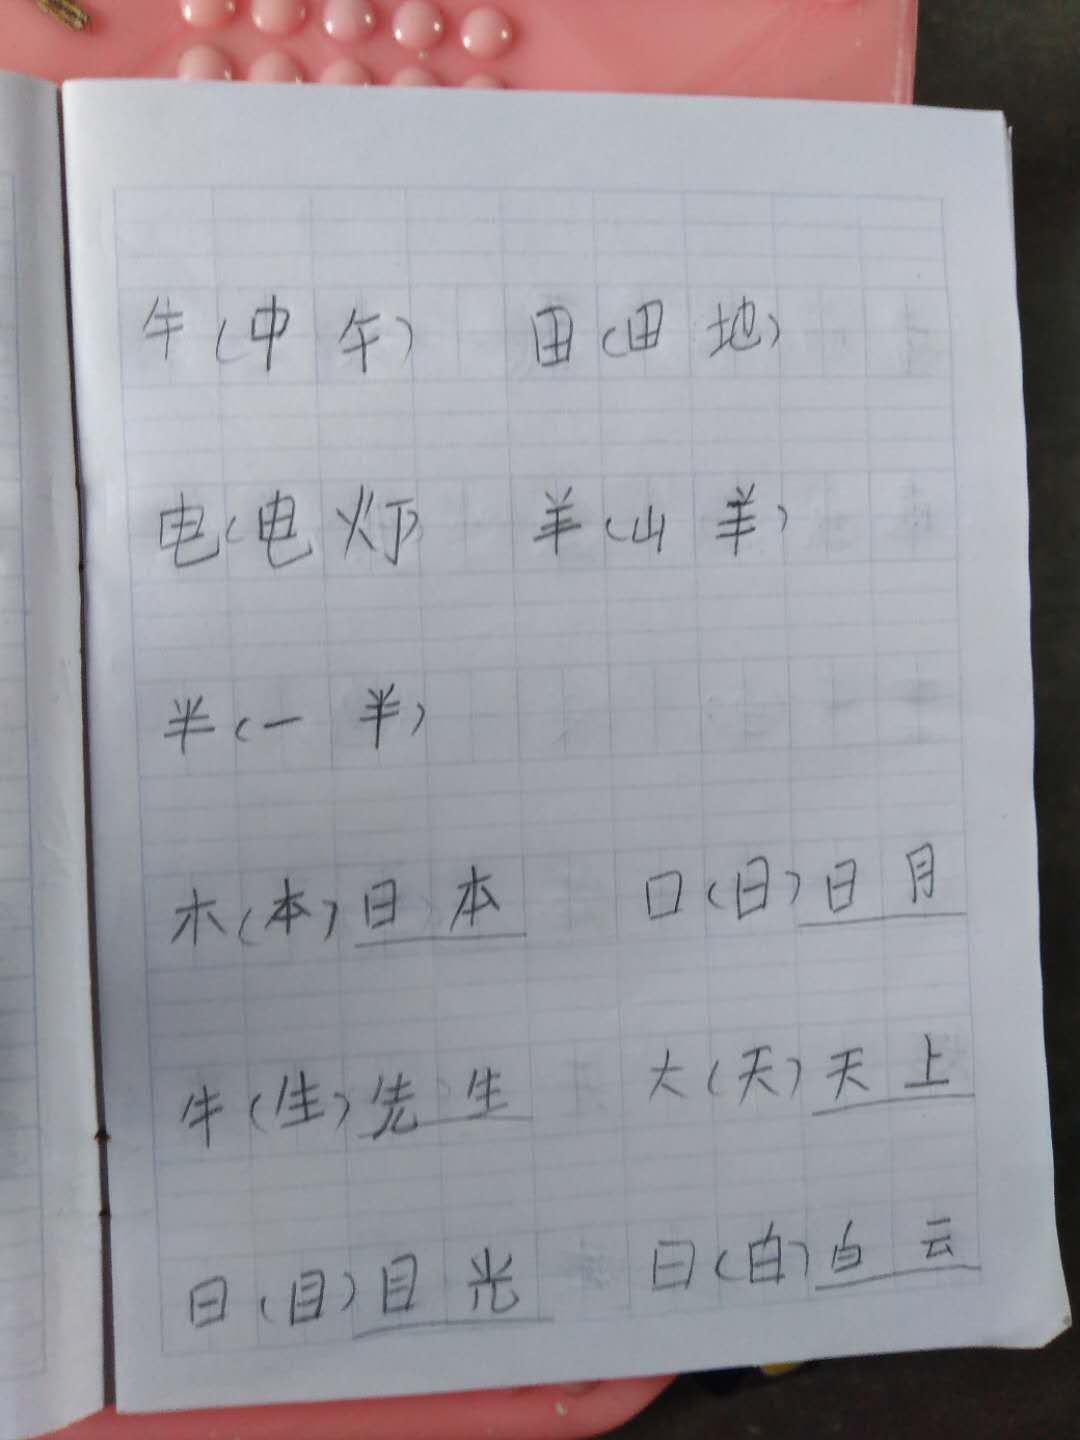 午(中午) 田(田地)
电(电灯) 羊(山羊)
半(一半)
木(本)日本 口(日)日月
牛(生)先生 大(天)天上
日(目)目光 日(白)白云